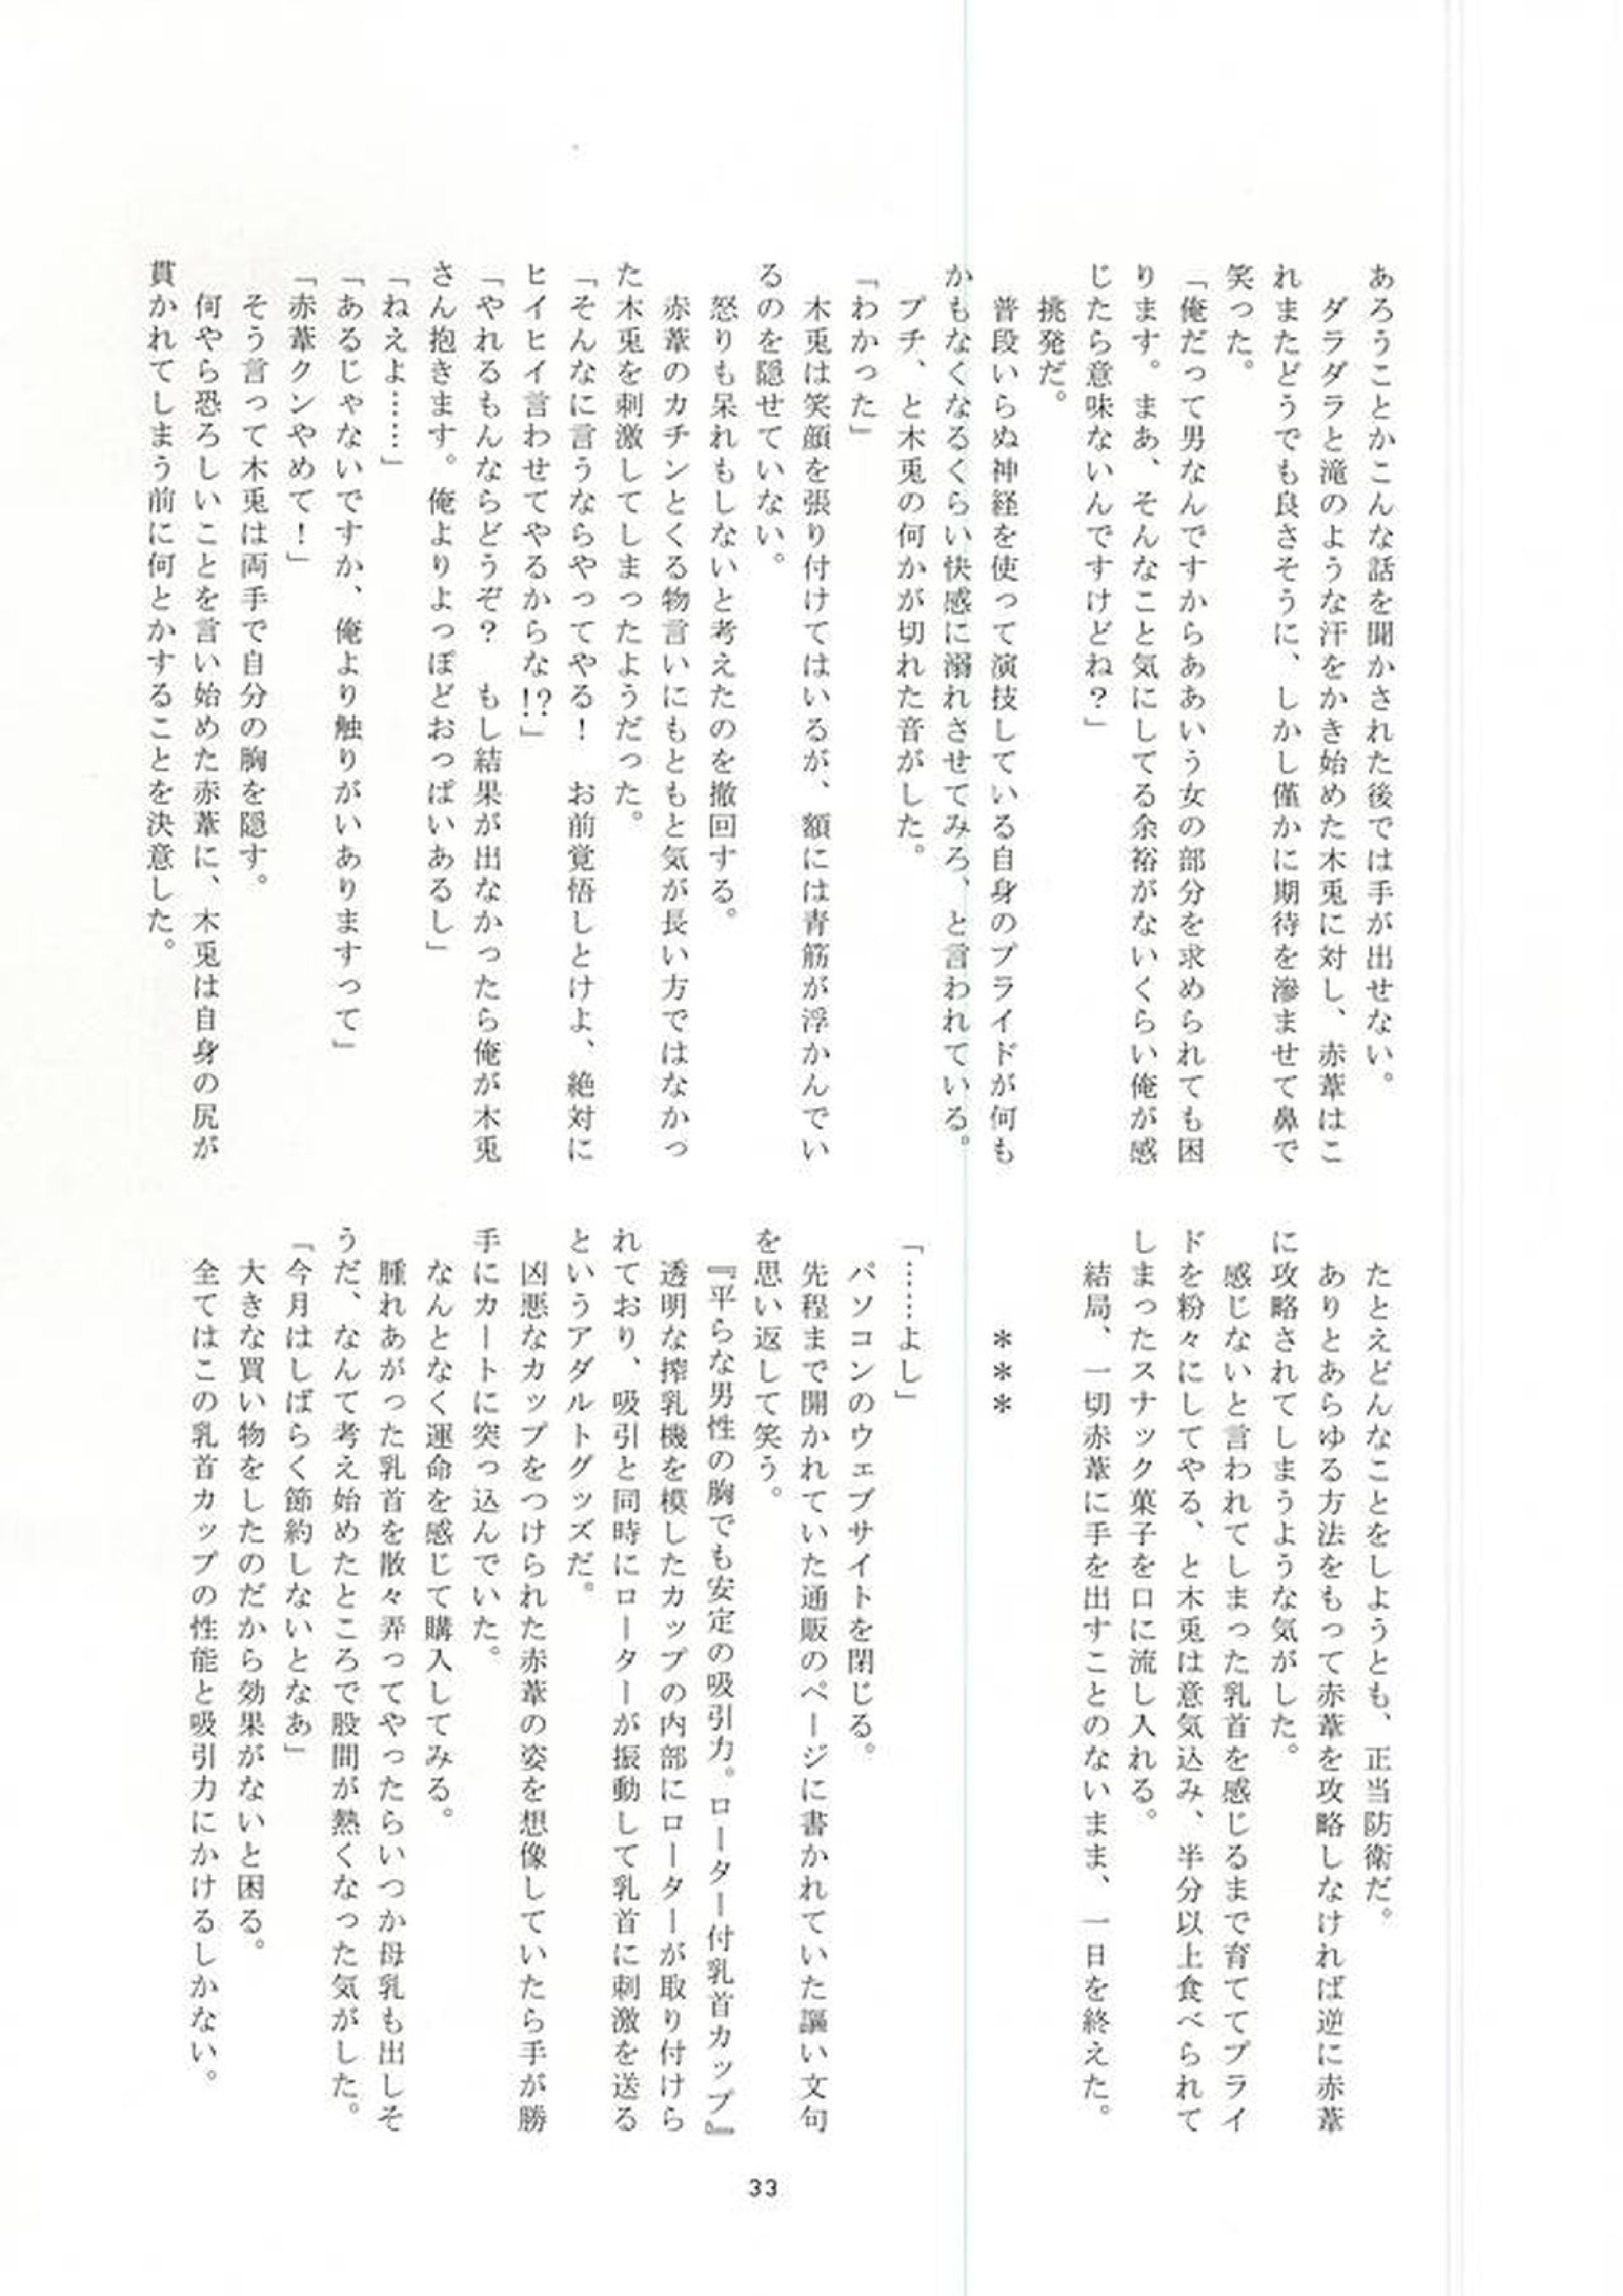 あろうことかこんな話を聞かされた後では手が出せない。
ダラダラと滝のような汗をかき始めた木兎に対し、赤葦はこ
れまたどうでも良さそうに、しかし僅かに期待を滲ませて鼻で
笑った。
「俺だって男なんですからああいう女の部分を求められても困
ります。まあ、そんなこと気にしてる余裕がないくらい俺が感
じたら意味ないんですけどね？」
挑発だ。
普段いらぬ神経を使って演技している自身のプライドが何も
かもなくなるくらい快感に溺れさせてみろ、と言われている。
プチ、と木兎の何かが切れた音がした。
「わかった」
木兎は笑顔を張り付けてはいるが、額には青筋が浮かんでい
るのを隠せていない。
怒りも呆れもしないと考えたのを撤回する。
赤葦のカチンとくる物言いにもともと気が長い方ではなかっ
た木兎を刺激してしまったようだった。
「そんなに言うならやってやる！　お前覚悟しとけよ、絶対に
ヒイヒイ言わせてやるからな！？」
「やれるもんならどうぞ？　もし結果が出なかったら俺が木兎
さん抱きます。俺よりよっぽどおっぱいあるし」
「ねえよ……」
「あるじゃないですか、俺より触りがいありますって」
「赤葦クンやめて！」
そう言って木兎は両手で自分の胸を隠す。
何やら恐ろしいことを言い始めた赤葦に、木兎は自身の尻が
貫かれてしまう前に何とかすることを決意した。
たとえどんなことをしようとも、正当防衛だ。
ありとあらゆる方法をもって赤葦を攻略しなければ逆に赤葦
に攻略されてしまうような気がした。
感じないと言われてしまった乳首を感じるまで育ててプライ
ドを粉々にしてやる、と木兎は意気込み、半分以上食べられて
しまったスナック菓子を口に流し入れる。
結局、一切赤葦に手を出すことのないまま、一日を終えた。
＊＊＊
「……よし」
パソコンのウェブサイトを閉じる。
先程まで開かれていた通販のページに書かれていた謳い文句
を思い返して笑う。
『平らな男性の胸でも安定の吸引力。ローター付乳首カップ』
透明な搾乳機を模したカップの内部にローターが取り付けら
れており、吸引と同時にローターが振動して乳首に刺激を送る
というアダルトグッズだ。
凶悪なカップをつけられた赤葦の姿を想像していたら手が勝
手にカートに突っ込んでいた。
なんとなく運命を感じて購入してみる。
腫れあがった乳首を散々弄ってやったらいつか母乳も出しそ
うだ、なんて考え始めたところで股間が熱くなった気がした。
「今月はしばらく節約しないとなあ」
大きな買い物をしたのだから効果がないと困る。
全てはこの乳首カップの性能と吸引力にかけるしかない。
33